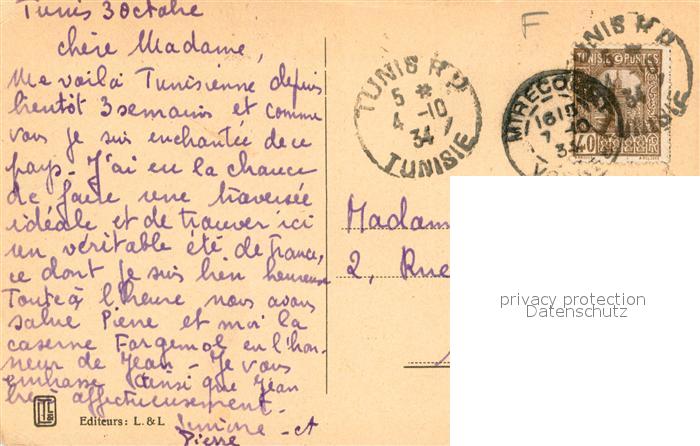 Tunis 3 octobre
chère Madame,
Me voilà Tunisienne depuis
bientôt 3 semaines et comme
vous je suis enchantée de ce
pays. J'ai eu la chance
de faire une traversée
idéale et de trouver ici
un véritable été de France,
ce dont je suis bien heureuse
Toute à l'heure nous avons
salué Pierre et moi la
caserne Forgemol en l'hon-
neur de Jean - Je vous
embrasse ainsi que Jean
très affectueusement.
Simone et
Pierre
Editeurs: L. & L
F
TUNIS R.P
5 *
4 -10
34
TUNISIE
MIRECOURT
16 15
7 -10
34
TUNISIE POSTES
40
TUNIS R.P
34
TUNISIE
Madam
2, Rue
privacy protection
Datenschutz